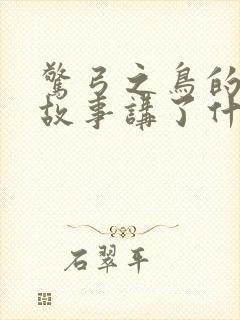 驚弓之鳥的
故事講了什
石翠平